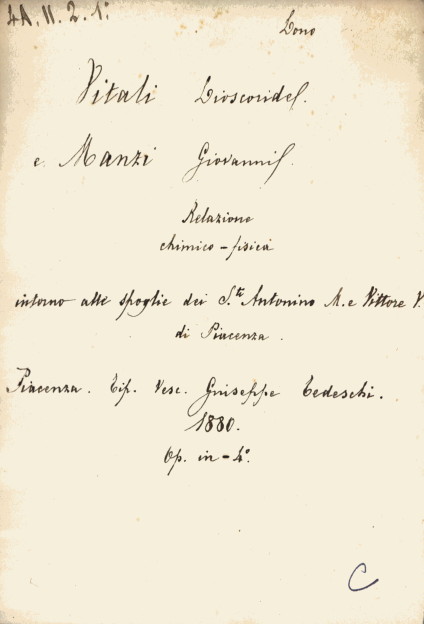 4A. II. 2. 1.
Dono
Vitali Dioscoride.
e Manzi Giovanni.
Relazione
chimico - fisica
intorno alle spoglie dei S.ti Antonino M. e Vittore V.
di Piacenza.
Piacenza. Tip. Vesc. Guiseppe Tedeschi.
1880.
Op. in - 4°.
C